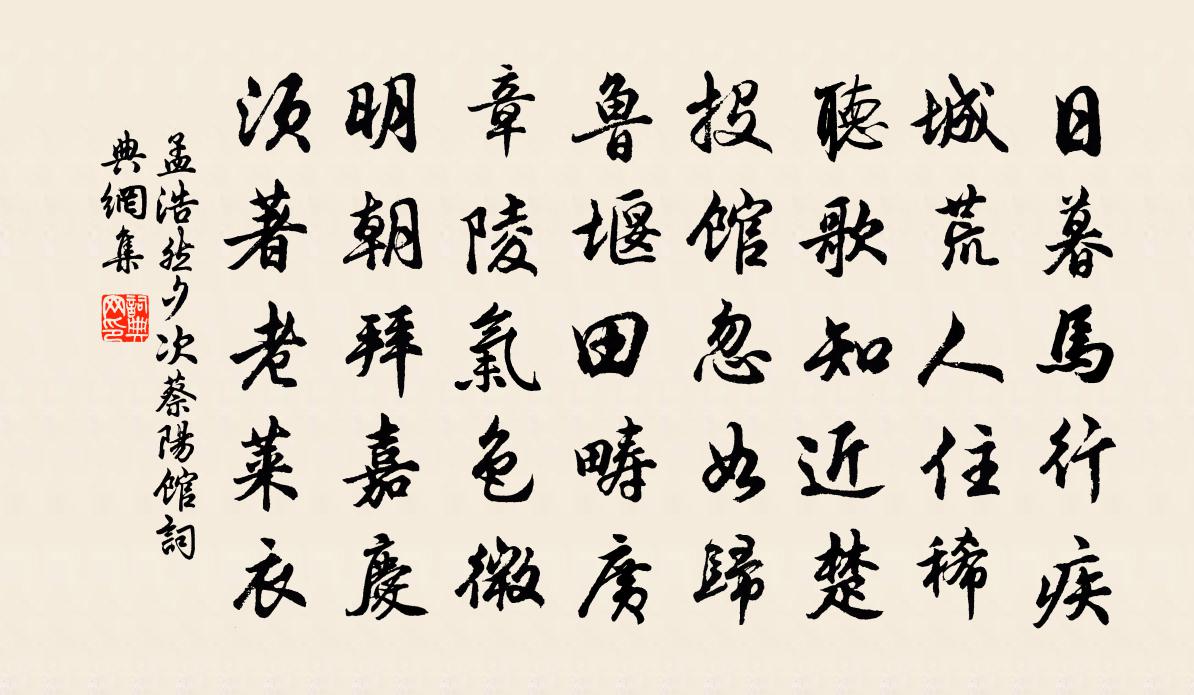 日暮馬行疾
城荒人住稀
聽歌知近楚
投館忽如歸
魯堰田疇廣
章陵氣色微
明朝拜嘉慶
須著老萊衣
孟浩然夕次蔡陽館詞
典網集
詞典
网印